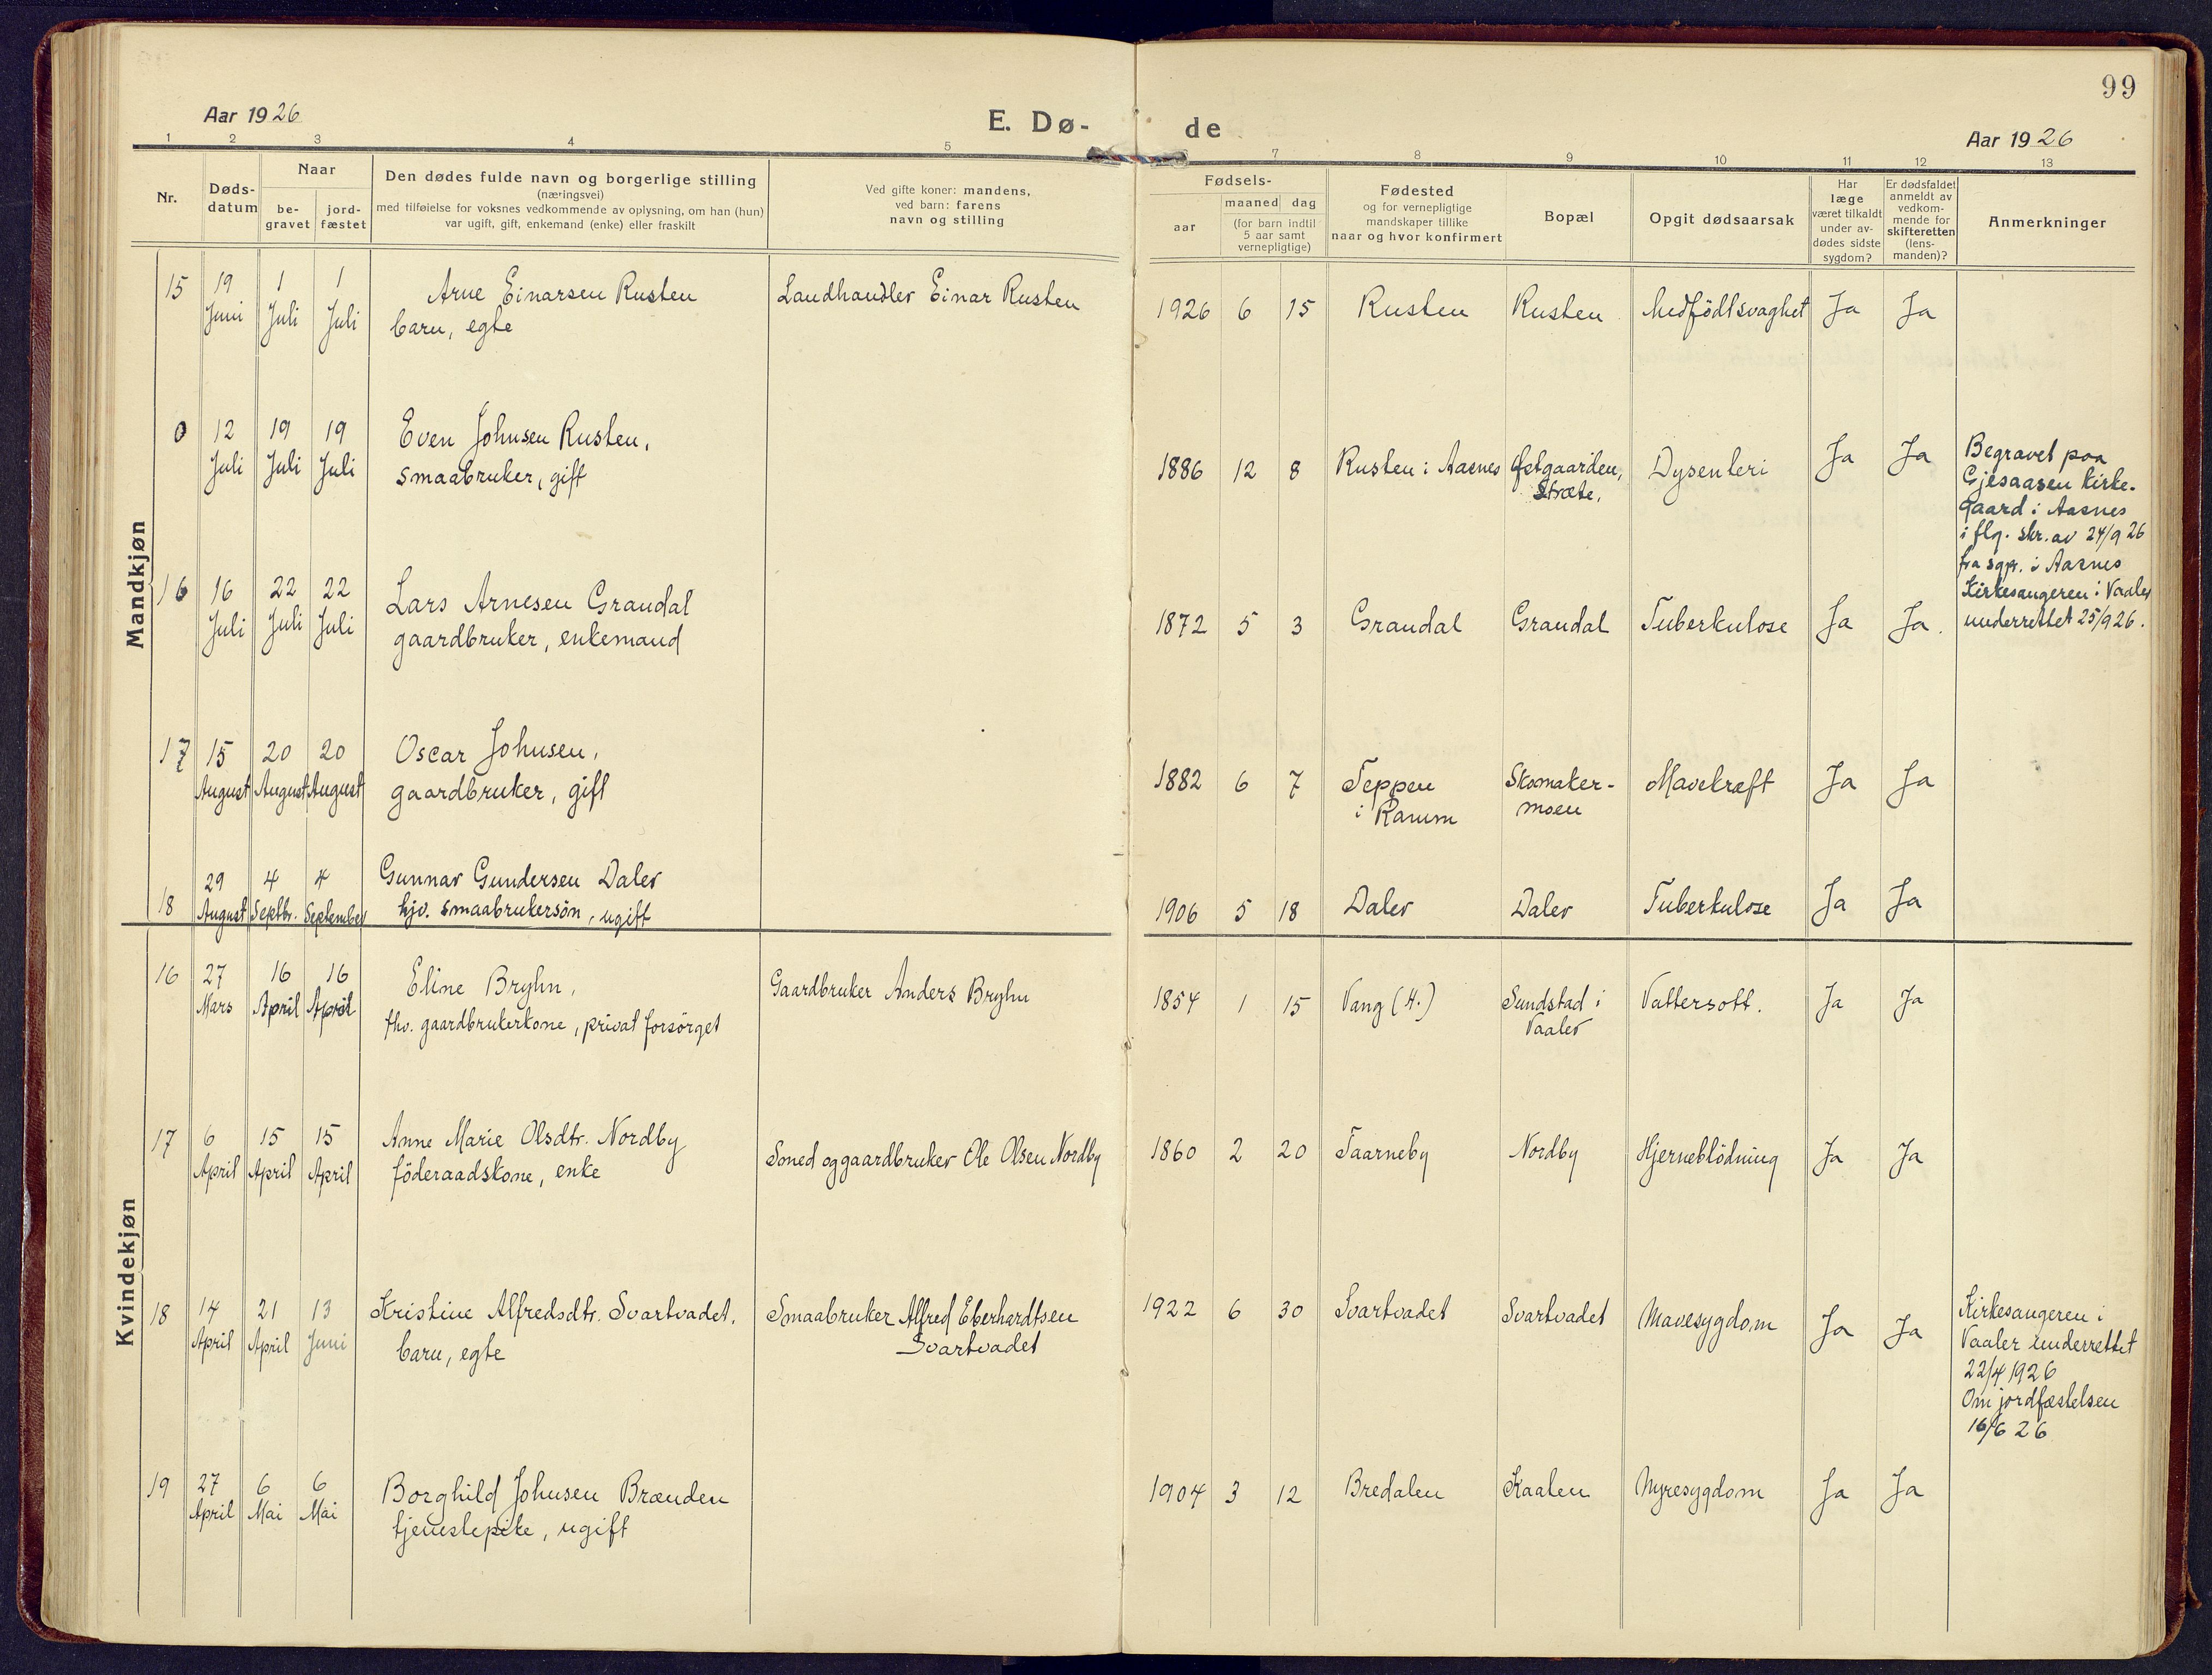 99
Aar 1926
E. Dø-
de
Aar 1926
1 2 3 4 5 7 8 9 10 11 12 13
Nr.
Døds-
datum
Naar
be-
gravet
jord-
fæstet
Den dødes fulde navn og borgerlige stilling
(næringsvei)
med tilføielse for voksnes vedkommende av oplysning, om han (hun)
var ugift, gift, enkemand (enke) eller fraskilt
Ved gifte koner: mandens,
ved barn: farens
navn og stilling
Fødsels-
aar
maaned dag
(for barn indtil
5 aar samt
vernepligtige)
Fødested
og for vernepligtige
mandskaper tillike
naar og hvor konfirmert
Bopæl
Opgit dødsaarsak
Har
læge
været tilkaldt
under av-
dødes sidste
sygdom?
Er dødsfaldet
anmeldt av
vedkom-
mende for
skifteretten
(lens-
manden)?
Anmerkninger
Mandkjøn
15 19 1 1 Arne Einarsen Rusten Landhandler Einar Rusten 1926 6 15 Rusten Rusten Medfödt svaghet Ja Ja
Juni Juli Juli barn, egte
0 12 19 19 Even Johnsen Rusten, 1886 12 8 Rusten i Aasnes Østgaarden, Dysenteri Ja Ja
Juli Juli Juli smaabruker, gift
Stræte.
Begravet paa
Gjesaasen kirke-
gaard i Aasnes
i flg. skr. av 24/9 26
fra sgpr. i Aasnes
Kirkesangeren i Vaaler
underrettet 25/9 26.
16 16 22 22 Lars Arnesen Grandal 1872 5 3 Grandal Grandal Tuberkulose Ja Ja.
Juli Juli Juli gaardbruker, enkemand
17 15 20 20 Oscar Johnsen, 1882 6 7 Teppen Skomaker- Mavekræft Ja Ja
August August August gaardbruker, gift i Ranum moen
18 29 4 4 Gunnar Gundersen Daler 1906 5 18 Daler Daler Tuberkulose Ja Ja
August Septbr. September hjv. smaabrukersön, ugift
Kvindekjøn
16 27 16 16 Eline Bryhn, Gaardbruker Anders Bryhn 1854 1 15 Vang (H.) Sundstad i Vattersott. Ja Ja
Mars April April fhv. gaardbrukerkone, privat forsörget Vaaler
17 6 15 15 Anne Marie Olsdtr. Nordby Smed og gaardbruker Ole Olsen Nordby 1860 2 20 Taarneby Nordby Hjerneblödning Ja Ja
April April April föderaadskone, enke
18 14 21 13 Kristine Alfredsdtr. Svartvadet. Smaabruker Alfred Eberhardtsen 1922 6 30 Svartvadet Svartvadet Mavesygdom Ja Ja
April April Juni barn, egte Svartvadet
Kirkesangeren i
Vaaler underrettet
22/4 1926
Om jordfæstelsen
16/6 26
19 27 6 6 Borghild Johnsen Brænden 1904 3 12 Bredalen Kaalen Nyresygdom Ja Ja
April Mai Mai tjenestepike, ugift